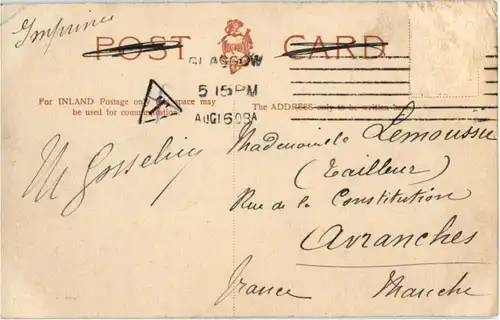 Imprimé
POST CARD
GLASGOW
5 15 PM
AUG 16 09
For INLAND Postage only space may
be used for communication.
The ADDRESS only to be written here
T
M Gosselin
Mademoiselle Lemoussu
(Tailleur)
Rue de la Constitution
Avranches
France Manche